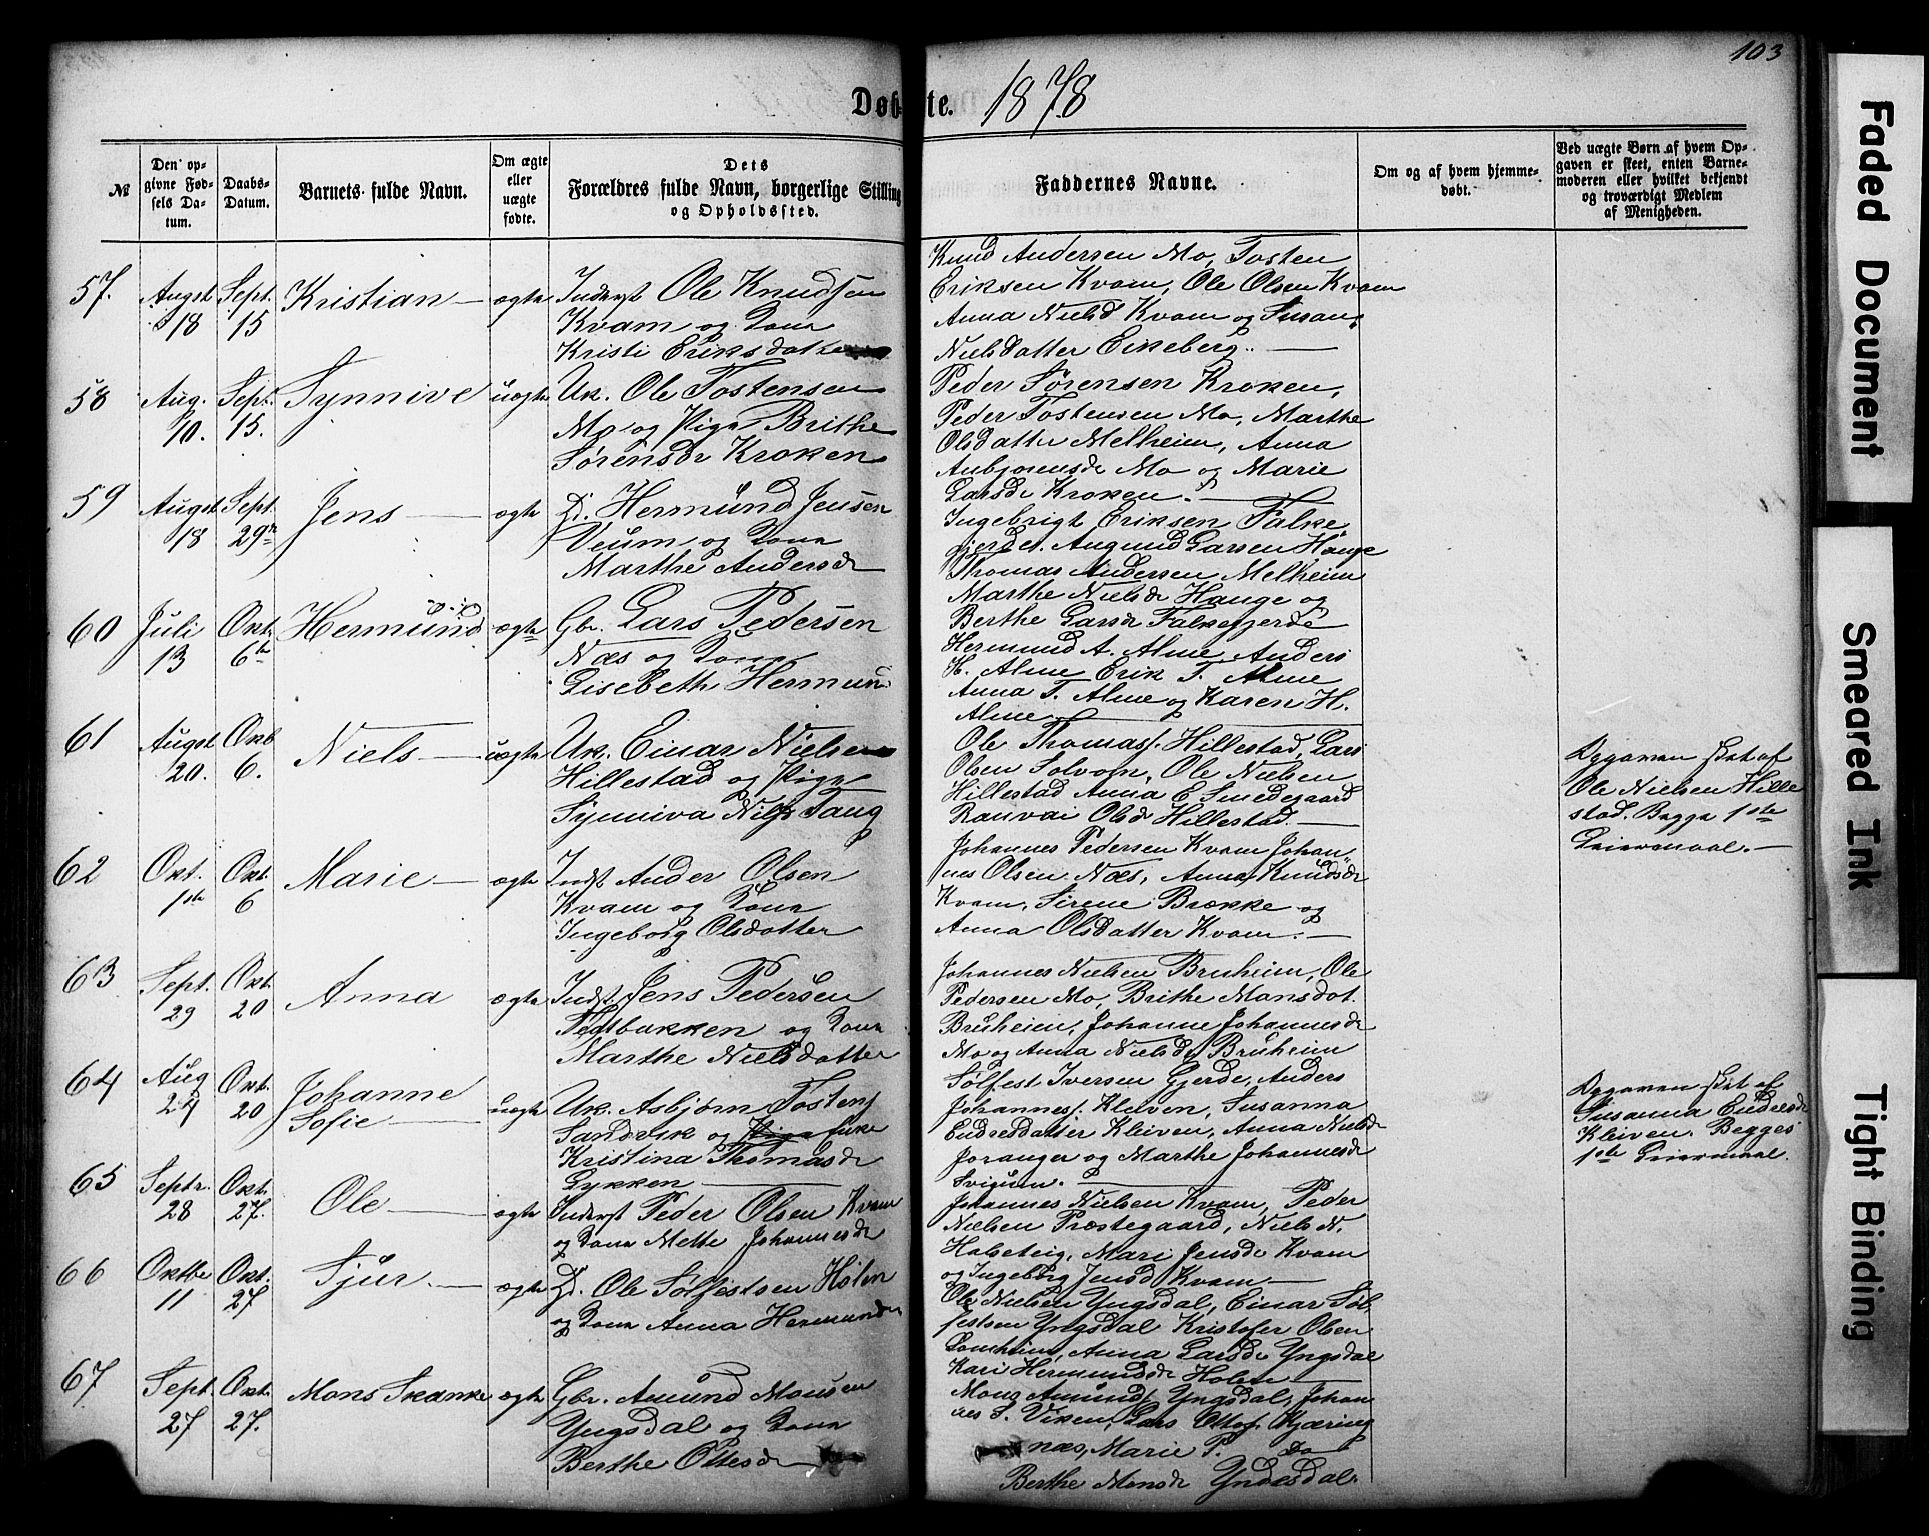 103
Døbte. 1878
№
Den opgivne Fødsels Datum.
Daabs-Datum.
Barnets fulde Navn.
Om ægte eller uægte fødte.
Dets Forældres fulde Navn, borgerlige Stilling og Opholdssted.
Faddernes Navne.
Om og af hvem hjemmedøbt.
Ved uægte Børn af hvem Opgaven er skeet, enten Barnemoderen eller hvilket bekjendt og troværdigt Medlem af Menigheden.
57. Augst 18 Sept. 15 Kristian ægte
Inderst Ole Knudsen
Kvam og Kona
Kristi Eriksdatter
Knud Andersen Mo, Tosten
Eriksen Kvam, Ole Olsen Kvam
Anna Nielsd Kvam og Susan
Nielsdatter Eikeberg.
58 Aug. 10. Sept. 15. Synnive uægte
Uk. Ole Tostensen
Mo og Pige Brithe
Sørensdr Kroken
Peder Sørensen Kroken,
Peder Tostensen Mo, Marthe
Olsdatter Melheim, Anna
Anbjørensdr Mo og Marie
Larsdr Kroken.
59 Augst 18 Sept. 29n Jens ægte
Gd. Hermund Jensen
Veum og Kona
Marthe Andersdr
Ingebrigt Eriksen Falke
gjerdet. Augund Larsen Hauge
Thomas Andersen Melheim
Marthe Nielsdr Hauge og
Berthe Larsdr Falkegjerde
60 Juli 13 Okt. 6te Hermund ægte
Gbr. Lars Pedersen
Næs og Kona
Lisebeth Hermun
Hermund A. Alme Anders
H. Alme Erik T. Alme
Anna T. Alme og Karen H.
Alme
61 Augst 20. Okt 6. Niels uægte
Uk. Einar Nielsen
Hillestad og Pige
Synniva Nilsdr Taug
Ole Thomass. Hillestad, Lars
Olsen Solvorn, Ole Nielsen
Hillestad Anna E. Smedegaard
Ranvai Olsdr Hillestad.
Opgaven skeet af
Ole Nielsen Hille
stad. Begge 1ste
Leiermaal.
62 Okt. 1ste Okt 6 Marie ægte
Indst Ander Olsen
Kvam og Kona
Ingeborg Olsdatter
Johannes Pedersen Kvam Johan
nes Olsen Næs, Anna Knudsdr
Kvam, Sirene Brække og
Anna Olsdatter Kvam.
63 Sept. 29 Okt. 20 Anna ægte
Indst. Jens Pedersen
Teltbakken og Kona
Marthe Nielsdatter
Johannes Nielsen Bruheim, Ole
Pedersen Mo, Brithe Monsdot.
Bruheim, Johanne Johannesdr
Mo og Anna Nielsdr Bruheim
64 Aug 24 Okt. 20 Johanne
Sofie uægte
Uk. Asbjørn Tostens
Sandvik og Pige Enke
Kristina Thomasdr
Lykken
Sølfest Iversen Gjerde, Anders
Johanness. Kleiven, Susanna
Endresdatter Kleiven, Anna Nielsdr
Joranger og Marthe Johannesdr
Svigum.
Opgaven skeet af
Susanna Endresdr
Kleiven. Begges
1ste Leiermaal.
65 Septr. 28 Okt. 27. Ole ægte
Inderst Peder Olsen Kvam
og Kona Mette Johannesdr
Johannes Nielsen Kvam, Peder
Nielsen Præstegaard, Niels N.
Halseteig, Mari Jensdr Kvam
og Ingeborg Jensd Kvam
66 Oktbe 11 Okt. 27 Sjur. ægte
Gd. Ole Sølfestsen Holen
og Kona Anna Hermundsdr
Ole Nielsen Yngsdal, Einar Søl
festsen Yngsdal Kristofer Olsen
Lomheim, Anna Larsdr Yngsdal
Kari Hermundsdr Holen
67 Sept 27 Okt. 27. Mons Skanke ægte
Gbr. Amund Monsen
Yngsdal og Kona
Berthe Ottesdr
Mons Amunds. Yngsdal, Johan
nes S. Viken, Lars Ottos. Kjæring
næs, Marie P. Do
Berthe Monsdr Yndesdal.
Faded Document
Smeared Ink
Tight Binding